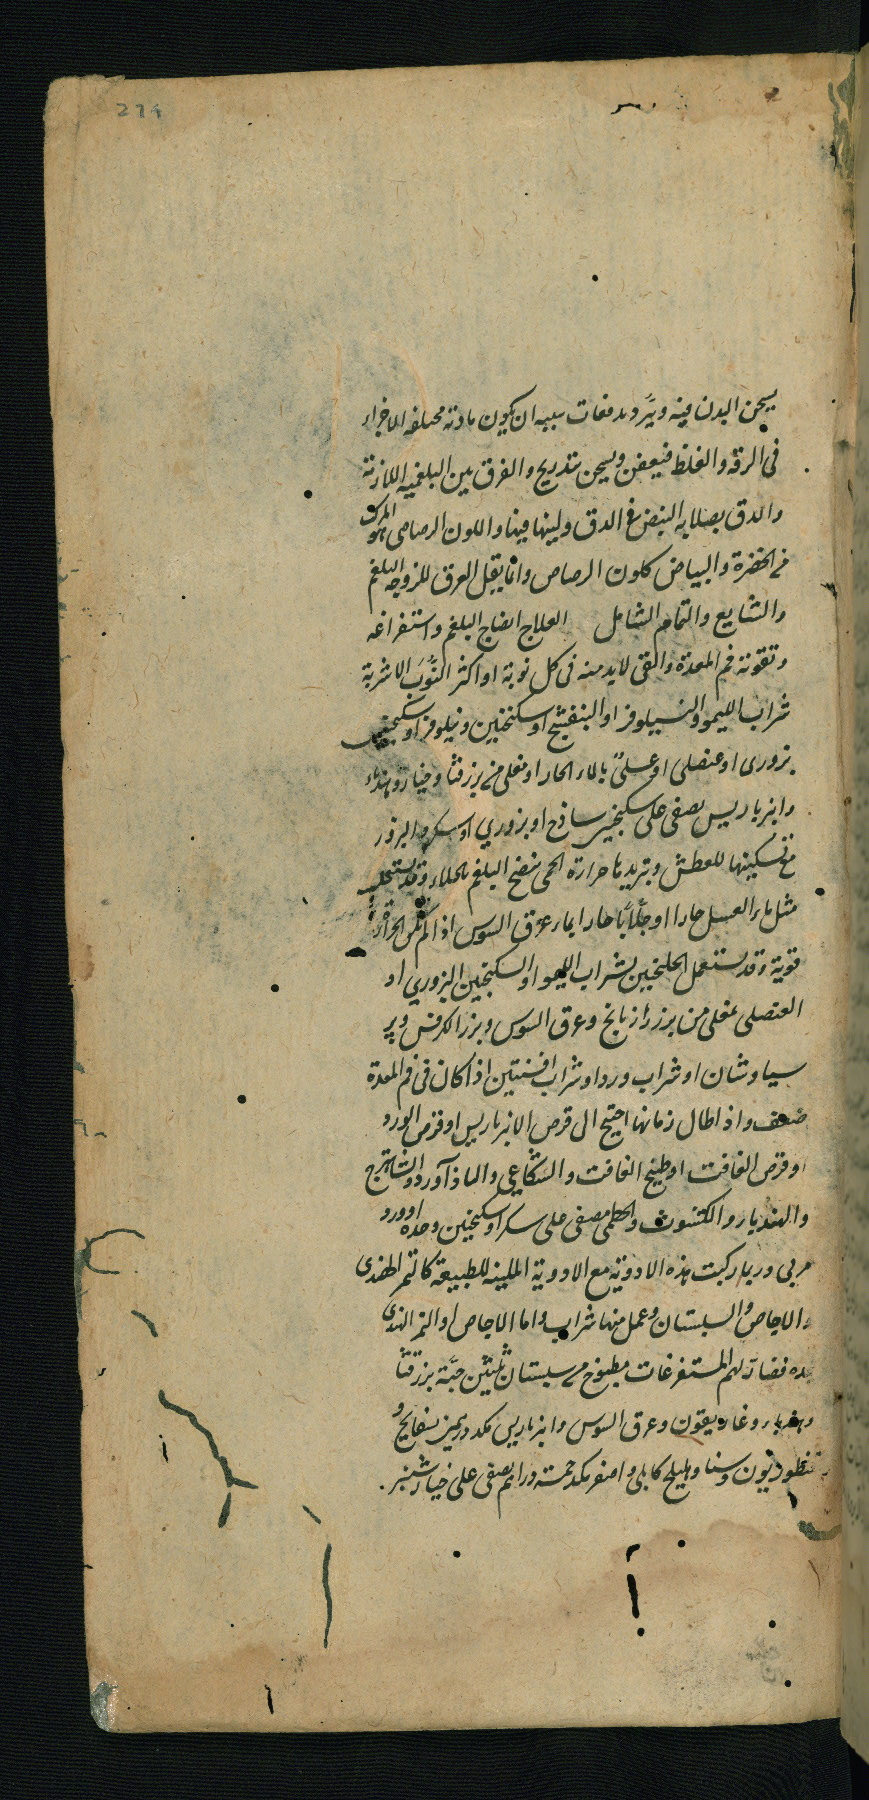 274
يسخن البدن فيه ويبرد دفعات سببه ان يكون مادته مختلفه الاجزاء
فى الرقه والغلظ فيعفن ويسخن بتدريج والفرق بين البلغميه اللازمة
والدق بصلابه النبض فى الدق ولينها فيها واللون الرصاصى هو المركب
من الخضرة والبياض كلون الرصاص وانما يقل العرق للزوجه البلغم
والشايع والتمام الشامل العلاج انضاج البلغم واستفراغه
وتقوية فم المعدة والقى لابد منه فى كل نوبة او اكثر النُّوَب الاشربة
شراب الليمو والنيلوفر او البنفسج او سكنجبين ونيلوفر او سكنجبين
بزورى او عنصلى او عسلىّ بالماء الحار او مغلى من بزر قثا وخيار وهندباء
وانبرباريس يصفى على سكنجبين ساذج او بزوري او سكر والبزور
مع تسكينها للعطش وتبريدها حرارة الحمى تنضج البلغم بالجلاء وقد يستعمل
مثل ماء العسل حارا او جلّابًا حارا بماء عرق السوس اذا لم تكن الحرارة
قوية وقد يستعمل الجلنجبين بشراب الليمو او السكنجبين البزوري او
العنصلى بمغلى من بزر رازيانج وعرق السوس وبزر الكرفس وپر
سياوشان او شراب ورد او شراب افسنتين اذا كان فى فم المعدة
ضعف واذا طال زمانها احتيج الى قرص الانبرباريس او قرص الورد
او قرص الغافت او طبيخ الغافت والشكاعي والباذآورد والشاهترج
والهندباء والكشوث والخطمى مصفى على سكر او سكنجبين وحده او ورد
مربى وربما ركبت هذه الادوية مع الادوية الملينة للطبيعة كالتمر الهندى
والاجاص والسبستان وعمل منها شراب واما الاجاص او التمر الهندى
وحده فضار لهم المستفرغات مطبوخ من سبستان ثلثين حبّة بزر قثا
وهندباء وغاريقون وعرق السوس وانبرباريس مكد درهمين بسفايج و
قنطوريون وسنا وهليلج كابلى واصفر مكد خمسة دراهم يصفى على خيار شنبر